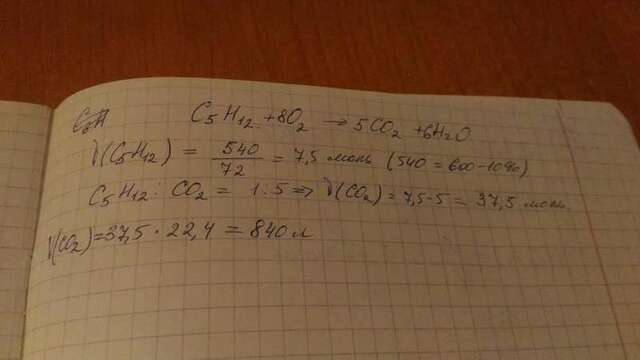 C₅H₁₂ + 8O₂ → 5CO₂ + 6H₂O
ν(C₅H₁₂) = 540/72 = 7,5 моль (540 = 600 - 10%)
C₅H₁₂ : CO₂ = 1 : 5 ⇒ ν(CO₂) = 7,5 · 5 = 37,5 моль.
V(CO₂) = 37,5 · 22,4 = 840 л